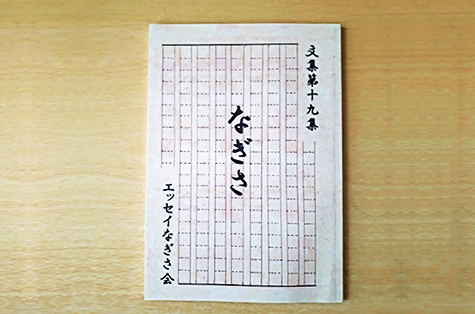 文集第十九集
なぎさ
エッセイなぎさ会